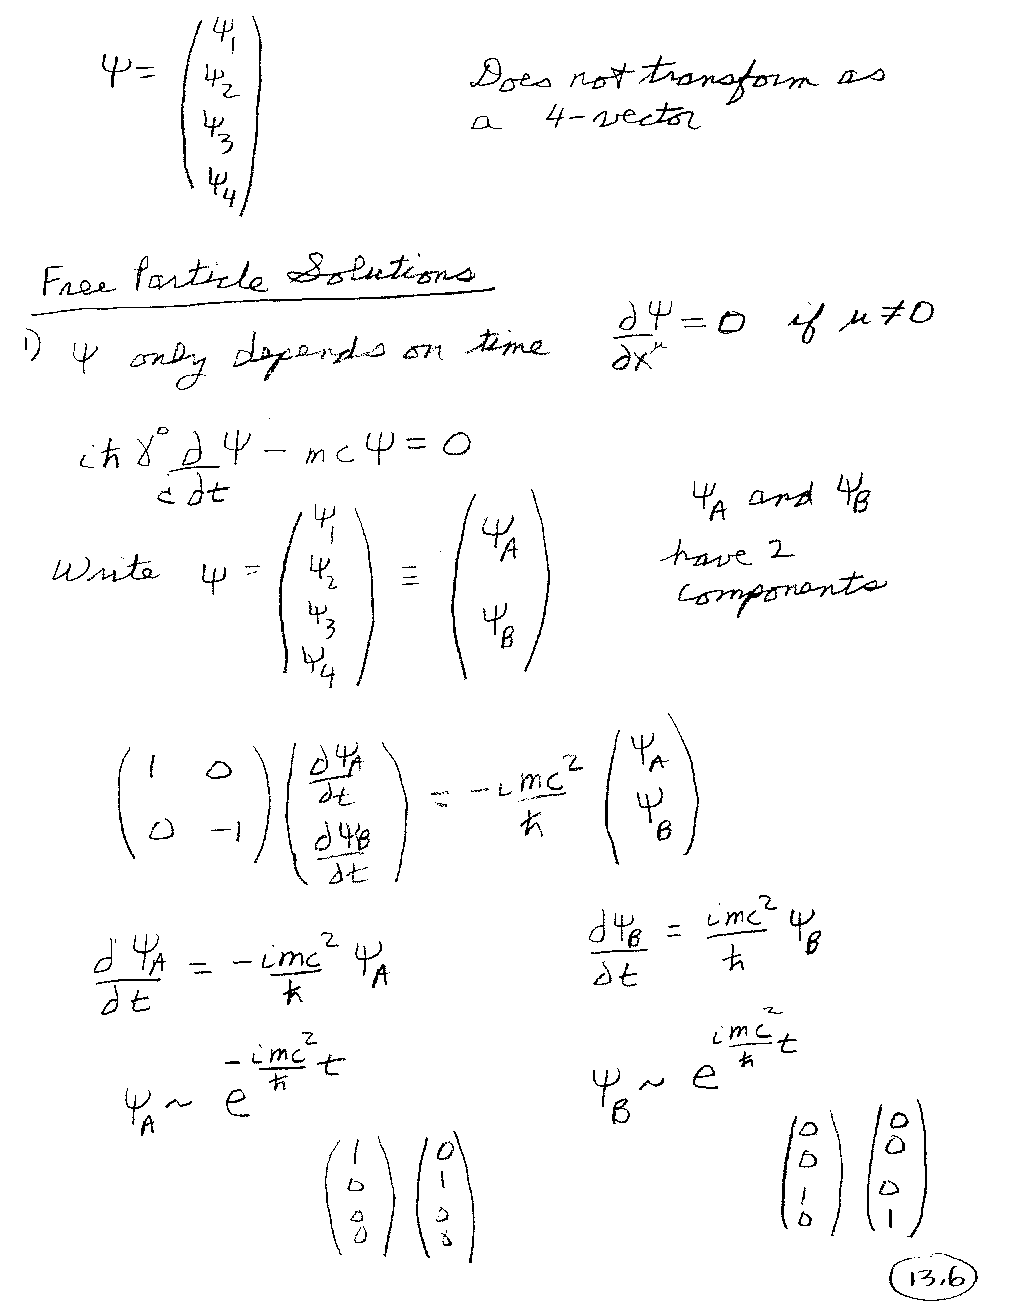 ψ = (ψ₁ ψ₂ ψ₃ ψ₄)
Does not transform as
a 4-vector
Free Particle Solutions
1) ψ only depends on time ∂ψ/∂x^μ = 0 if μ ≠ 0
iħ γ⁰ ∂/c∂t ψ - mcψ = 0
Write ψ = (ψ₁ ψ₂ ψ₃ ψ₄) ≡ (ψ_A ψ_B)
ψ_A and ψ_B
have 2
components
(1 0 0 -1) (∂ψ_A/∂t ∂ψ_B/∂t) = -imc²/ħ (ψ_A ψ_B)
∂ψ_A/∂t = -imc²/ħ ψ_A
∂ψ_B/∂t = imc²/ħ ψ_B
ψ_A ~ e^{-imc²/ħ t}
ψ_B ~ e^{imc²/ħ t}
(1 0 0 0) (0 1 0 0)
(0 0 1 0) (0 0 0 1)
13.6